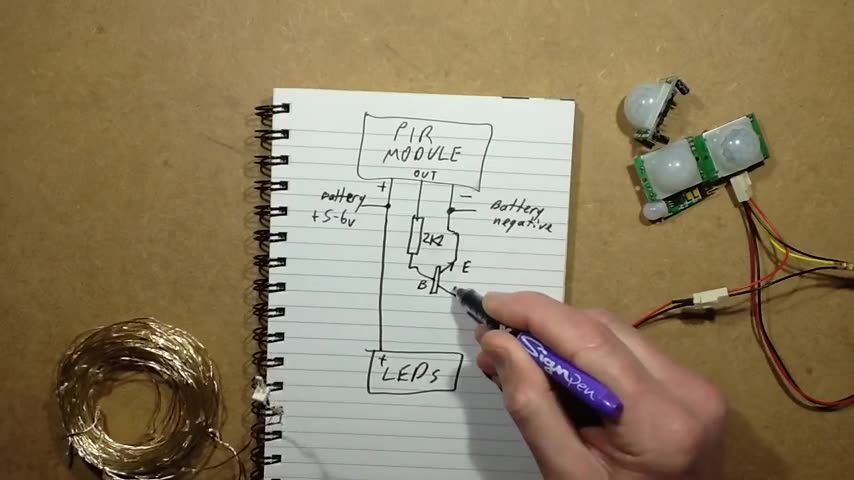 PIR
MODULE
OUT
+
−
Battery
+5-6v
Battery
negative
2K2
E
B
+
LEDs
Sign pen